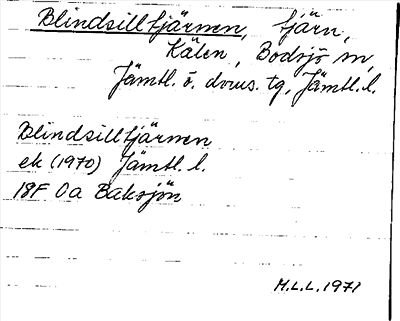 Blindsilltjärnen, tjärn,
Kälen, Bodsjö sn,
Jämtl. ö. doms. tg, Jämtl. l.
Blindsilltjärnen
ek (1970) Jämtl. l.
18F 0a Baksjön
M.L.L. 1971